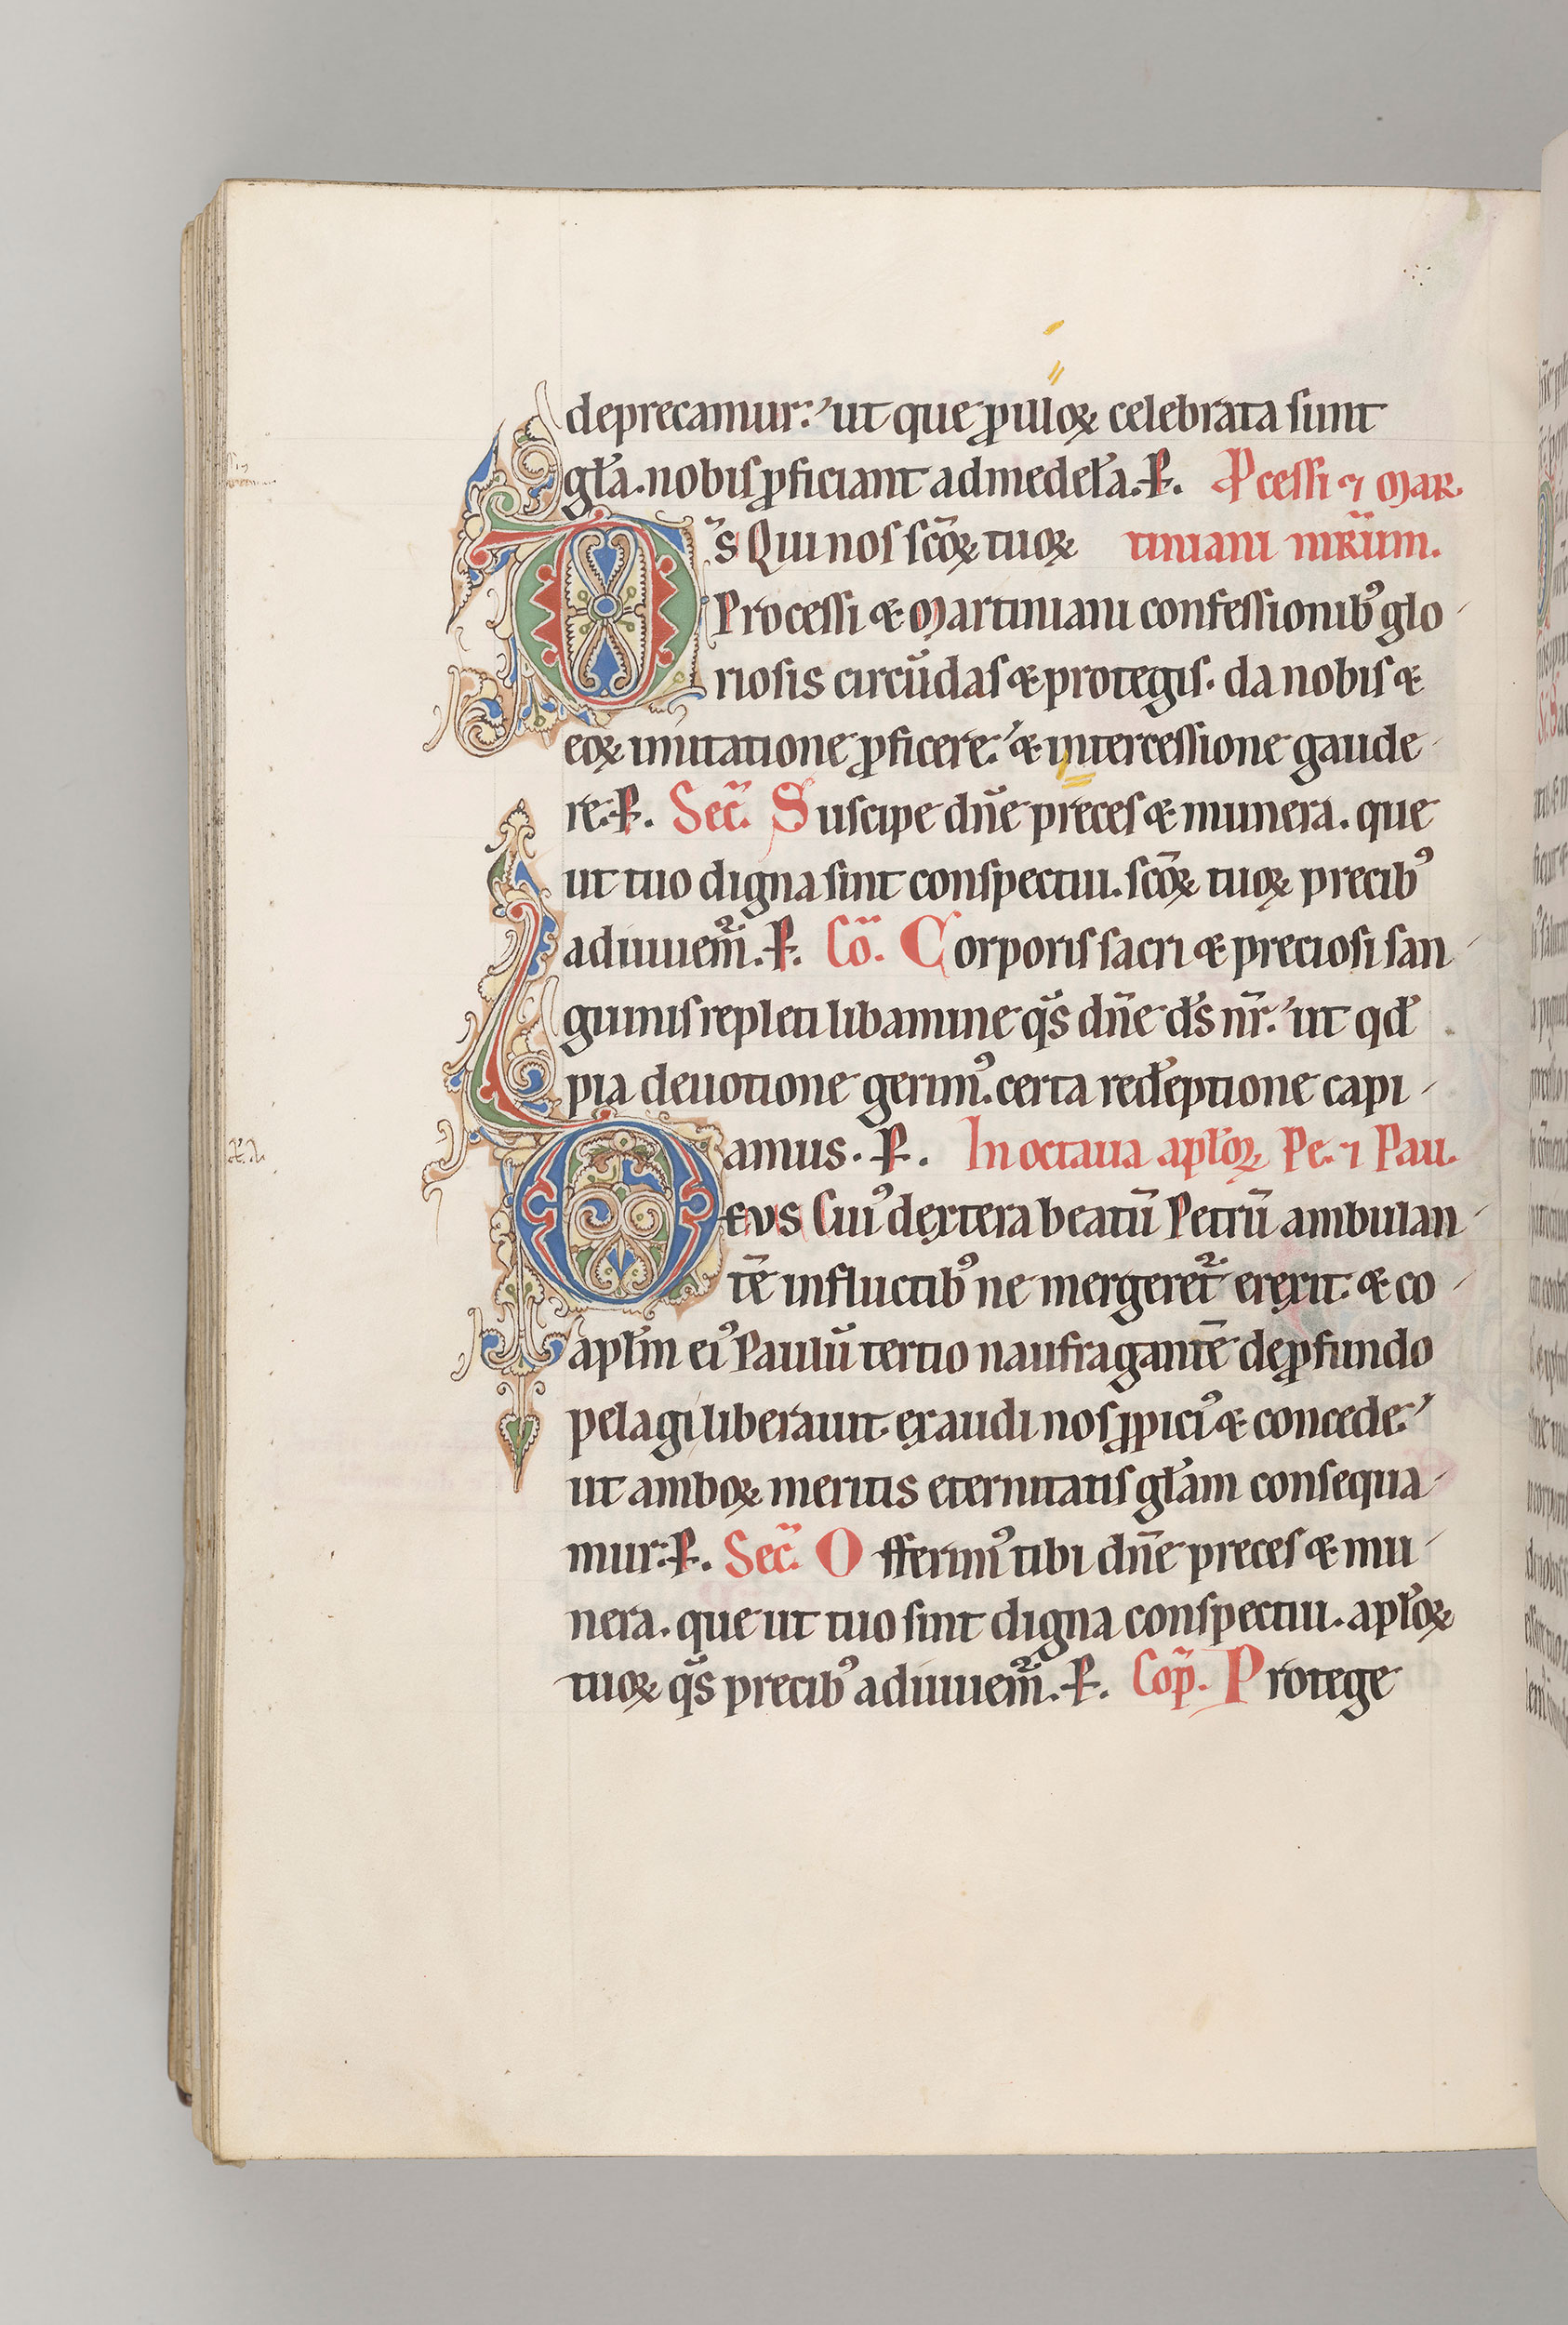 deprecamur: ut que ꝓ illoꝝ celebrata sunt
gl̄a. nobis ꝓficiant ad medel̄a. P̶. P̱cessi ⁊ Mar
D̄s Qui nos sc̄oꝝ tuoꝝ tiniani mr̄ium.
Processi & Martiniani confessionibꝰ glo
riosis circūdas & protegis. da nobis &
eoꝝ imitatione ꝓficere: & intercessione gaude
re. P̶. Sec̄. Suscipe dn̄e preces & munera. que
ut tuo digna sint conspectui. sc̄oꝝ tuoꝝ precibꝰ
adiuuem̄. P̶. Cō. Corporis sacri & preciosi san
guinis repleti libamine qs̄ dn̄e ds̄ nr̄: ut qđ
pia deuotione gerimꝰ. certa redēptione capi
amus. P̶. In octaua apl̄oꝝ Pe. ⁊ Pau.
DEVS Cuiꝰ dextera beatū Petrū ambulan
tē in fluctibꝰ ne mergeret̄ erexit. & co
apl̄m eiꝰ Paulū tertio naufragantē de ꝓfundo
pelagi liberauit. exaudi nos ꝓpiciꝰ & concede:
ut amboꝝ meritis eternitatis gl̄am consequa
mur. P̶. Sec̄. Offerimꝰ tibi dn̄e preces & mu
nera. que ut tuo sint digna conspectui. apl̄oꝝ
tuoꝝ qs̄ precibꝰ adiuuem̄. P̶. Cop̄. Protege